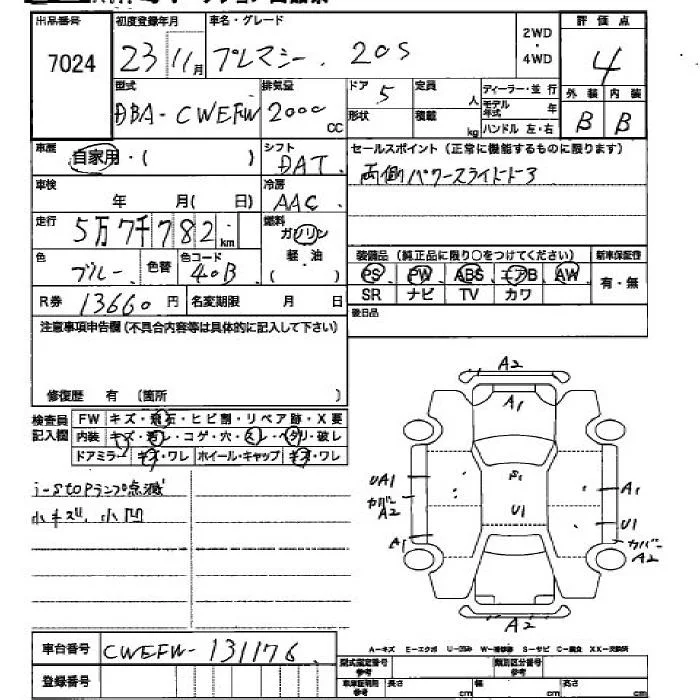 出品番号 初度登録年月 車名・グレード 2WD・4WD 評価点
7024 23 11月 プレマシー. 20S 4
型式 排気量 ドア 5 定員 人 ディーラー・並行 外装 内装
DBA-CWEFW 2000cc 形状 積載 kg モデル年式 年 B B
ハンドル 左・右
車歴 自家用・( ) シフト DAT セールスポイント(正常に機能するものに限ります)
車検 年 月( ) 冷房 AAC 両側パワースライドドア
走行 5万7千782km 燃料 ガソリン
色 ブルー 色替 色コード 40B 軽油 装備品(純正品に限り○をつけてください) 新車保証書
PS PW ABS エアB AW 有・無
R券 13660円 名変期限 月 日 SR ナビ TV カワ
注意事項申告欄(不具合内容等は具体的に記入して下さい) 後日品
修復歴 有(箇所 )
検査員記入欄 FW キズ・飛石・ヒビ割・リペア跡・X要
内装 キズ・汚レ・コゲ・穴・スレ・ヘタリ・破レ
ドアミラー キズ・ワレ ホイール・キャップ キズ・ワレ
i-stopランプ点滅
小キズ, 小凹
A2
A1
UA1 S1
カバー A2 A1
U1 U1
A1 カバー A2
A2
A-キズ E-エクボ U-凹み W-補修跡 S-サビ C-腐食 XX-交換済
車台番号 CWEFW-131176
登録番号 型式指定番号 参考 類別区分番号 参考
車庫証明用 参考 長さ cm 幅 cm 高さ cm